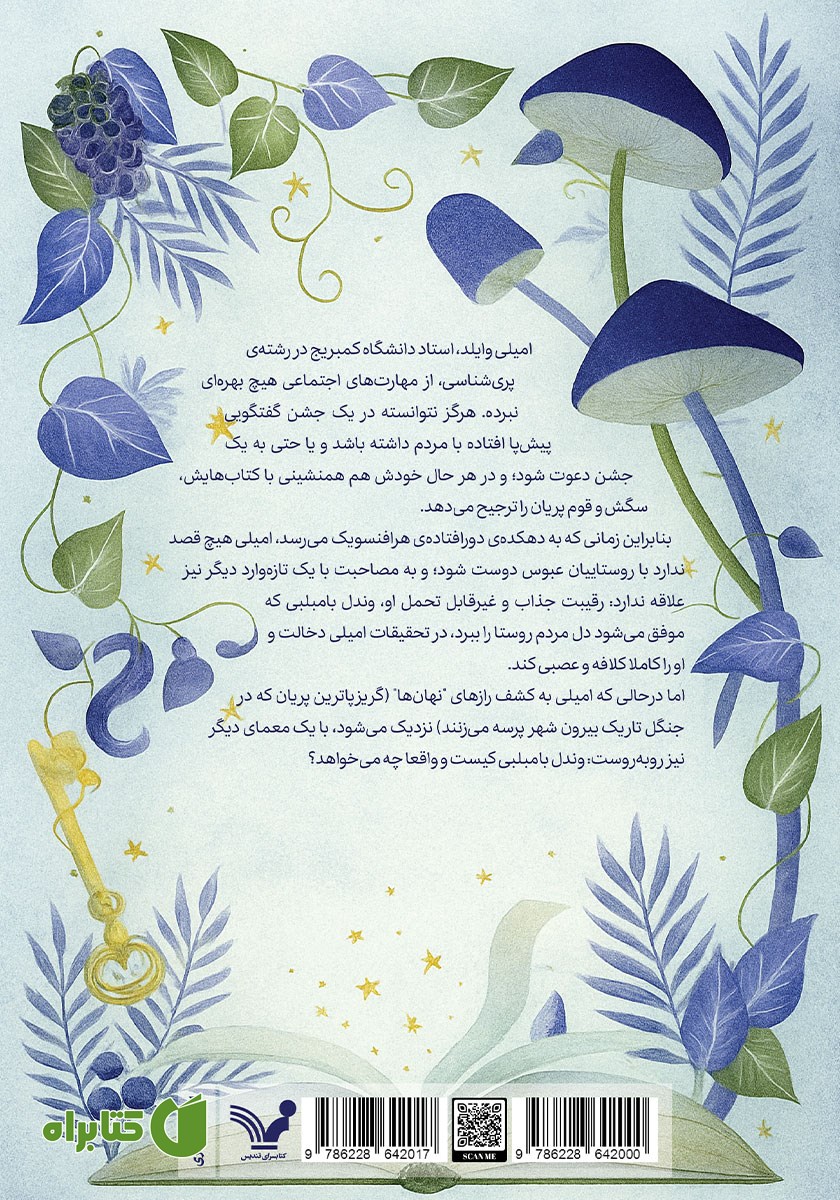 امیلی وایلد، استاد دانشگاه کمبریج در رشته‌ی
پری‌شناسی، از مهارت‌های اجتماعی هیچ بهره‌ای
نبرده. هرگز نتوانسته در یک جشن گفتگویی
پیش‌پا افتاده با مردم داشته باشد و یا حتی به یک
جشن دعوت شود؛ و در هر حال خودش هم همنشینی با کتاب‌هایش،
سگش و قوم پریان را ترجیح می‌دهد.
بنابراین زمانی که به دهکده‌ی دورافتاده‌ی هرافنسویک می‌رسد، امیلی هیچ قصد
ندارد با روستاییان عبوس دوست شود؛ و به مصاحبت با یک تازه‌وارد دیگر نیز
علاقه ندارد: رقیبت جذاب و غیرقابل تحمل او، وندل بامبلبی که
موفق می‌شود دل مردم روستا را ببرد، در تحقیقات امیلی دخالت و
او را کاملا کلافه و عصبی کند.
اما درحالی که امیلی به کشف رازهای "نهان‌ها" (گریزپاترین پریان که در
جنگل تاریک بیرون شهر پرسه می‌زنند) نزدیک می‌شود، با یک معمای دیگر
نیز روبه‌روست: وندل بامبلبی کیست و واقعا چه می‌خواهد؟
کتابراه
کتابسرای تندیس
9 786228 642017
SCAN ME
9 786228 642000